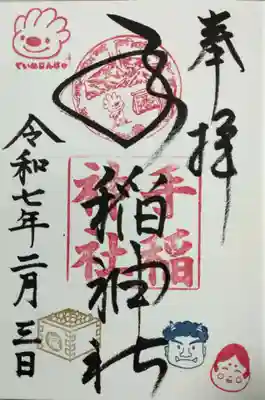 奉拝
手稲神社
手稲
神社
令和七年二月三日
ていぬじんじゃ